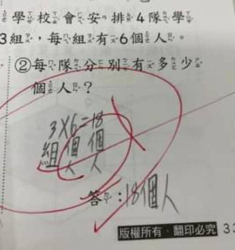 學校會安排4隊學
3組，每組有6個人。
②每隊分別有多少
個人？
3×6=18
組個個
人人
答：18個人
版權所有．翻印必究 3